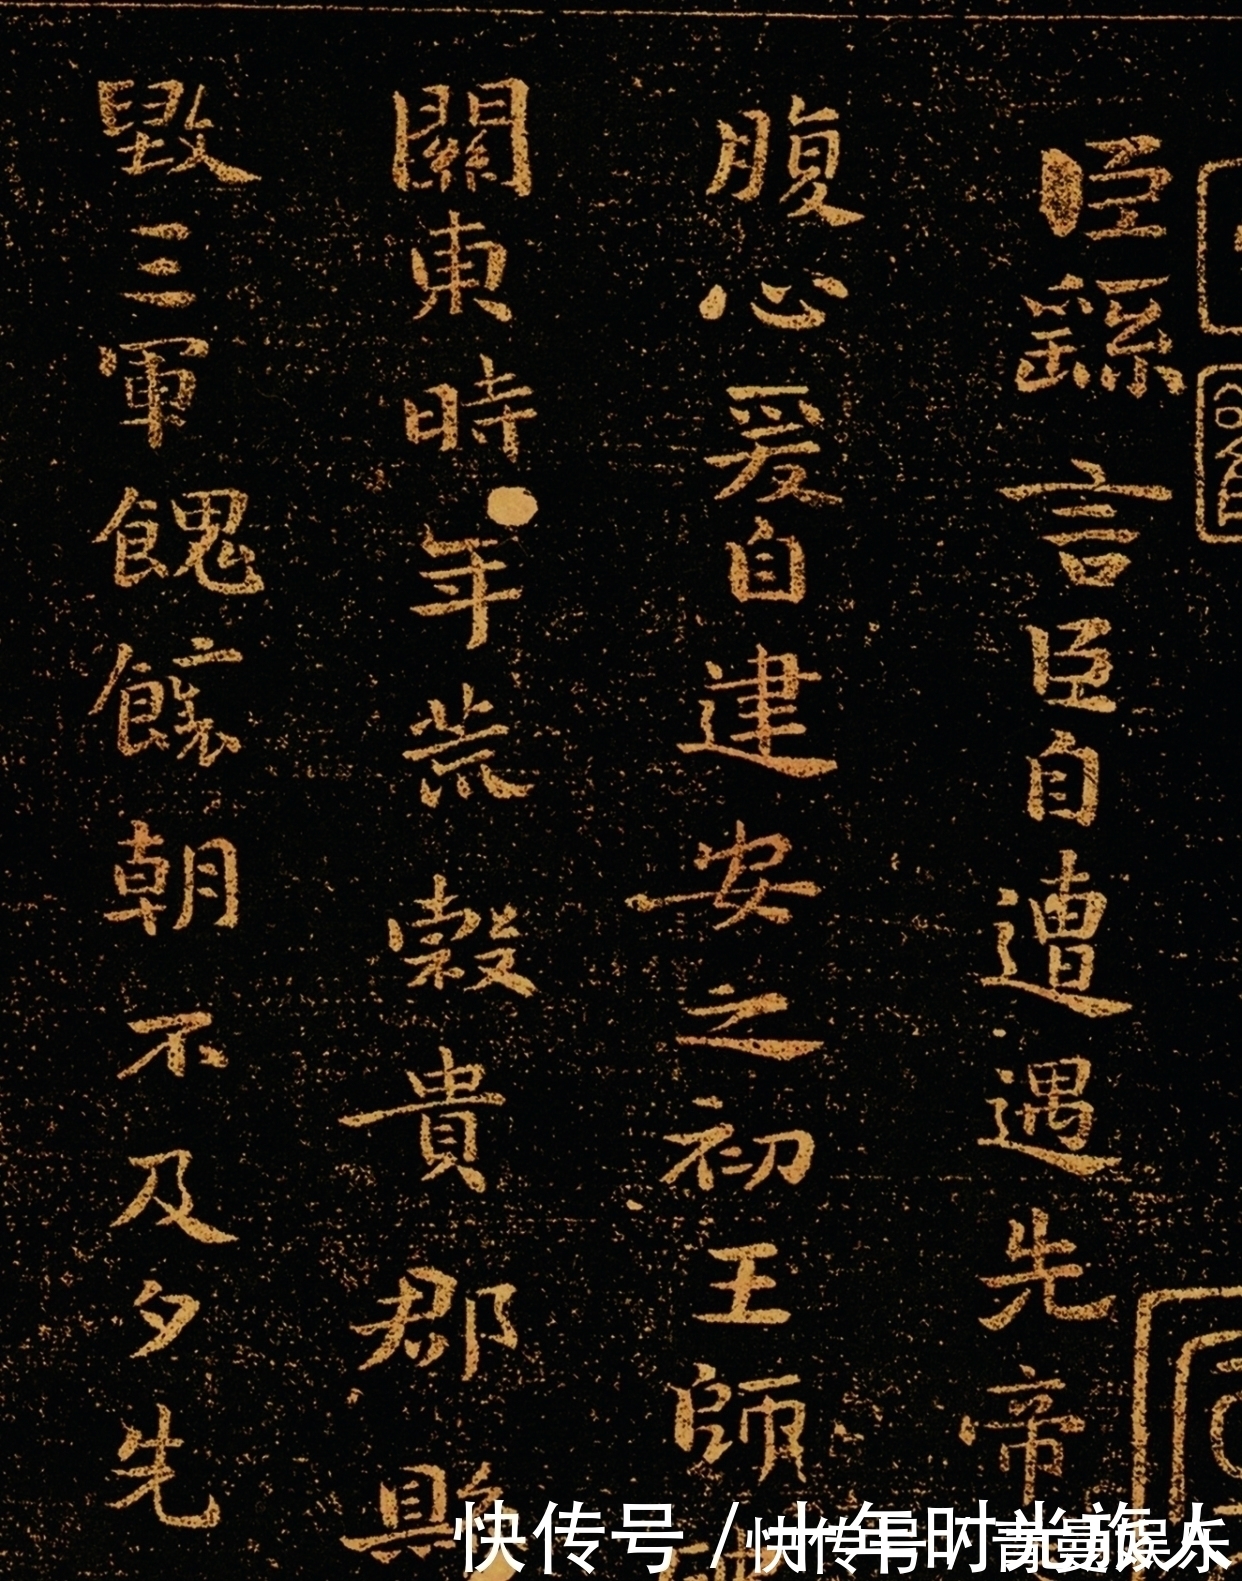 臣繇言臣自遭遇先帝
腹心爰自建安之初王師
關東時年荒穀貴郡縣
毀三軍餽饟朝不及夕先
快传号 / 十年时光旅人
快传号